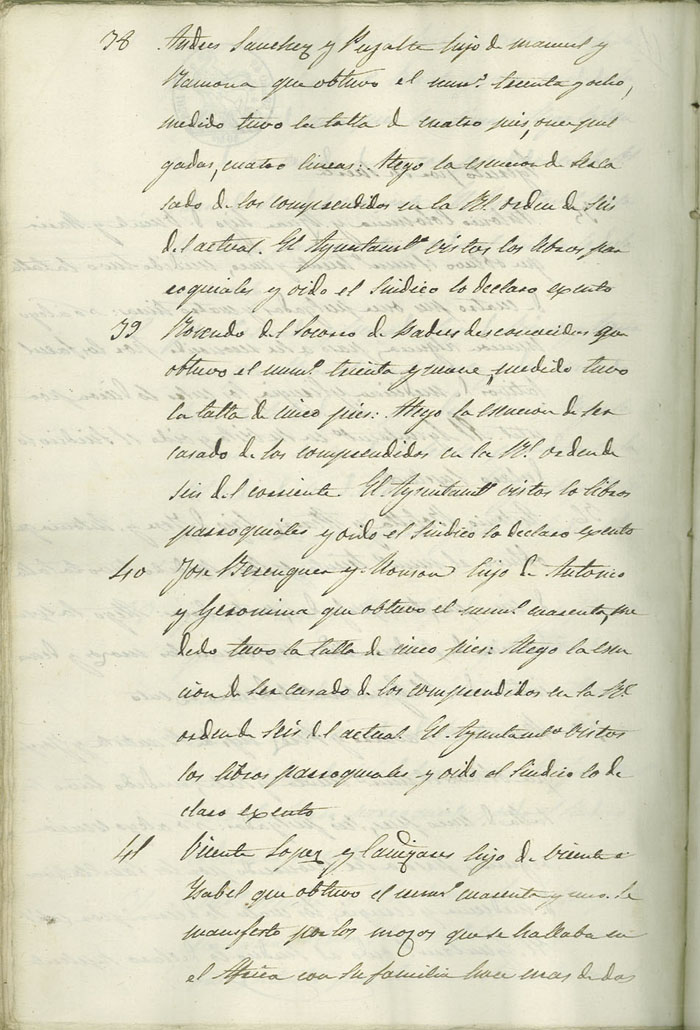 38 Andres Sanchez y Puxalte hijo de manuel y
Ramona que obtuvo el num.º treinta y ocho,
medido tuvo la talla de cuatro pies, once pul
gadas, cuatro lineas: Alego la esencion de ser ca
sado de los comprendidos en la Rl. orden de seis
del actual. El Ayuntam.to vistos los libros par
roquiales y oido el Sindico lo declaro exento
39 Rosendo del Socorro de Padres desconocidos que
obtuvo el num.º treinta y nueve, medido tuvo
la talla de cinco pies: Alego la esencion de ser
casado de los comprendidos en la Rl. orden de
seis del corriente. El Ayuntam.to vistos lo libros
parroquiales y oido el Sindico lo declaro exento
40 Jose Berenguer y Monzon hijo de Antonio
y Geronima que obtuvo el num.º cuarenta, me
dido tuvo la talla de cinco pies: Alego la esen
cion de ser casado de los comprendidos en la Rl.
orden de seis del actual. El Ayuntam.to vistos
los libros parroquiales y oido al Sindico lo de
claro exento
41 Vicente Lopez y Cañizares hijo de Vicente e
Ysabel que obtuvo el num.º cuarenta y uno. Se
manifesto por los mozos que se hallaba en
el Africa con su familia hace mas de dos